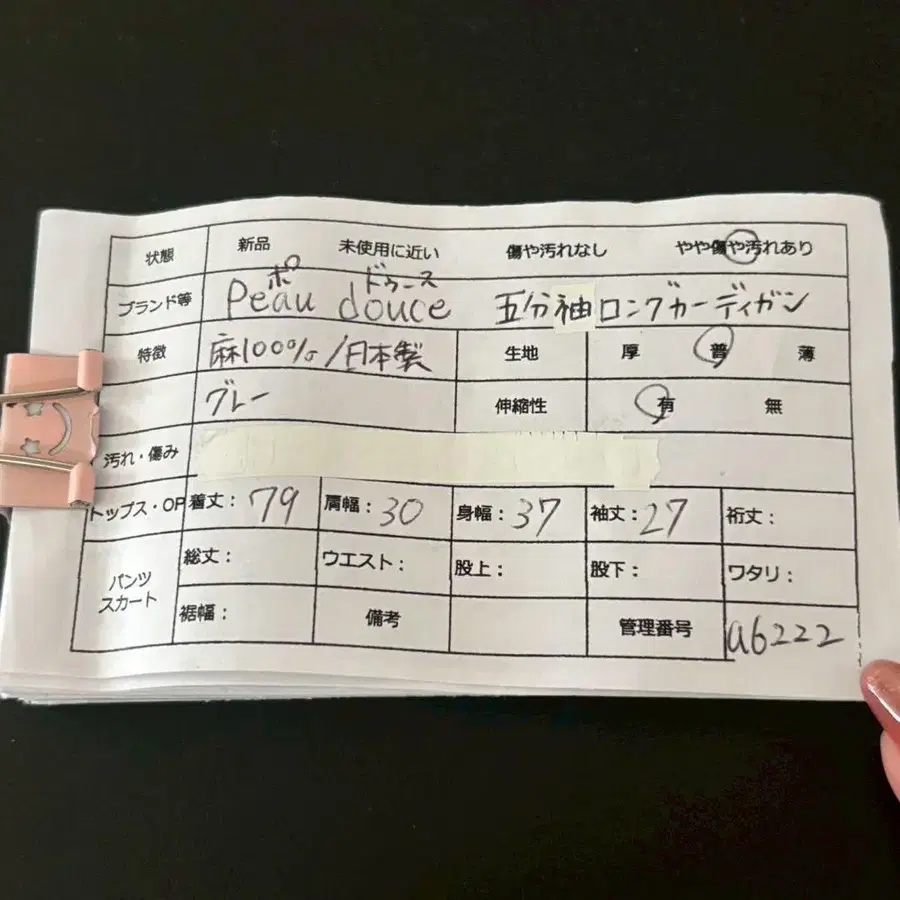 状態 新品 未使用に近い 傷や汚れなし やや傷や汚れあり
ポ ドゥース
ブランド等 Peau douce 五分袖ロングカーディガン
特徴 麻100%/日本製 生地 厚 普 薄
グレー 伸縮性 有 無
汚れ・傷み
トップス・OP 着丈:79 肩幅:30 身幅:37 袖丈:27 裄丈:
パンツ スカート 総丈: ウエスト: 股上: 股下: ワタリ:
裾幅: 備考 管理番号 a6222